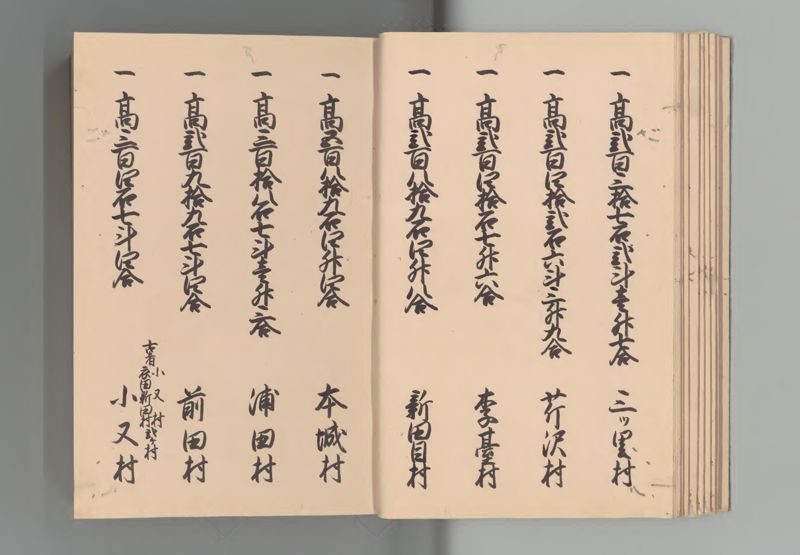 一 高弐百三拾七石弐斗壱升七合 三ツ里村
一 高弐百四拾弐石六斗三升九合 芹沢村
一 高弐百四拾石七升六合 李台村
一 高弐百八拾九石四升八合 新田目村
一 高五百八拾九石四升四合 本城村
一 高三百拾八石七斗壱升三合 浦田村
一 高弐百九拾九石七斗四合 前田村
古者 小又村 新田村 弐ケ村
一 高三百四石七斗四合 小又村